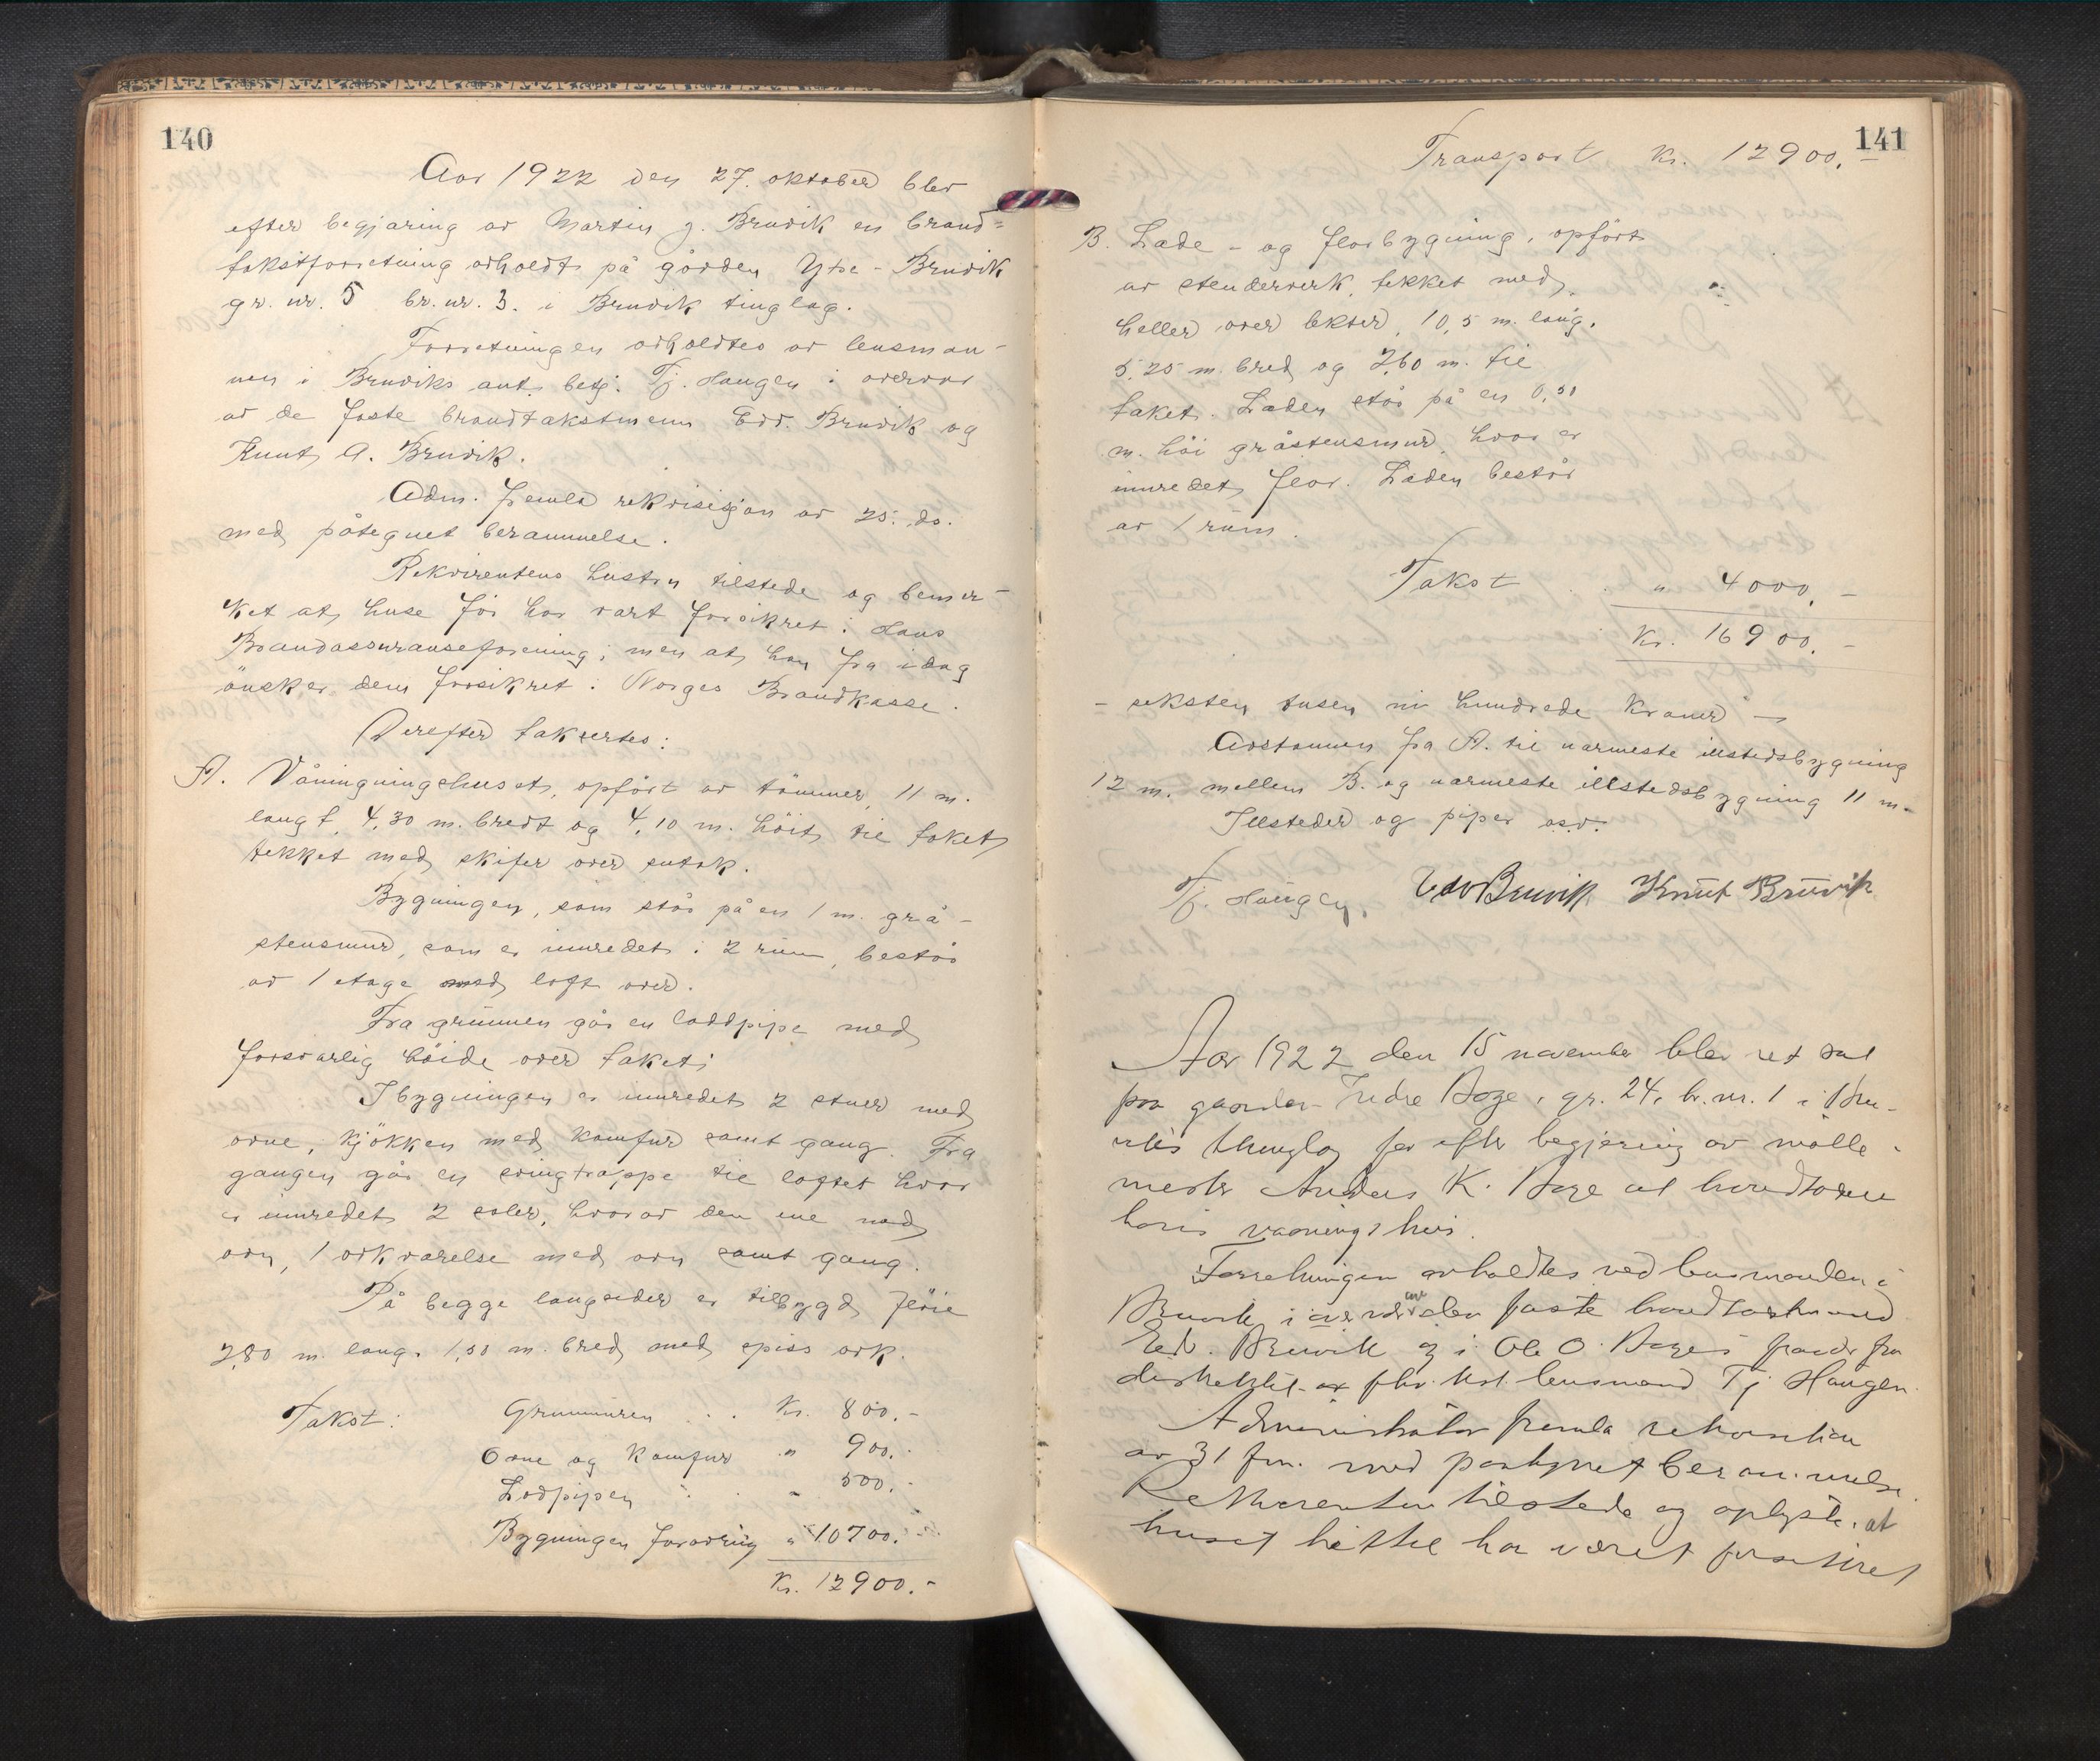 140
Aar 1922 den 27. oktober blev
efter begjæring av Martin J. Bruvik en brand=
takstforretning avholdt på gården Ytre-Bruvik
gr. nr. 5 br. nr. 3. i Bruvik tinglag.
Forretningen avholdtes av lensman-
nen i Bruviks aut. betj. Tj. Haugen i overvær
av de faste brandtakstmenn Edv. Bruvik og
Knut A. Bruvik.
Adm. fremla rekvisisjon av 25. ds.
med påtegnet berammelse.
Rekvirentens hustru tilstede og bemer-
ket at huse før har vært forsikret i Haus
Brandassuranseforening, men at han fra idag
ønsker dem forsikret i Norges Brandkasse.
Derefter taksertes:
A. Våningningshuset, opført av tømmer, 11 m.
langt, 4,30 m. bredt og 4,10 m. høit til taket
tekket med skifer over sutak.
Bygningen, som står på en 1 m. grå-
stensmur, som er innredet i 2 rum, består
av 1 etage med loft over.
Fra grunnen går en loddpipe med
forsvarlig høide over taket.
I bygningen er innredet 2 stuer med
ovne, kjøkken med komfur samt gang. Fra
gangen går en svingtrappe til loftet hvor
er innredet 2 saler, hvorav den ene med
ovn, 1 arkværelse med ovn samt gang.
På begge langsider er tilbygd fløie
2,80 m. lang, 1,50 m. bred med spiss ark.
Takst: Grunmuren . . Kr. 800.-
Ovne og komfur " 900.-
Lodpipen . . " 500.-
Bygningen forøvrig " 10700.-
Kr. 12900.-
141
Transport Kr. 12900.-
B. Lade- og florbygning, opført
av stenderverk, tekket med
heller over lekter, 10,5 m. lang,
5,25 m. bred og 2,60 m. til
taket. Laden står på en 0,50
m. høi gråstensmur, hvor er
innredet flor. Laden består
av 1 rum.
Takst . . " 4000.-
Kr. 16900.-
- seksten tusen ni hundrede kroner -
Avstannen fra A. til nærmeste illstedsbygning
12 m. mellem B. og nærmeste illstedsbygning 11 m.
Illsteder og piper osv.
Tj. Haugen. Edv Bruvik Knut Bruvik
Aar 1922 den 15 november blev ret sat
paa gaarden Indre Boge, gr. 24, br. nr. 1 i Bru-
viks thinglag for efter begjæring av mølle-
mester Anders K. Boge at brandtaxere
hans vaaningshus.
Forretningen avholdtes ved lensmanden i
Bruvik i overvær av den faste brandtakstmand
Edv. Bruvik og i Ole O. Boges fravær fra
distriktet fhv. kst. lensmand Tj Haugen.
Administrator fremla rekvisition
av 31 f.m. med paategnet berammelse.
Rekvirenten tilstede og oplyste, at
huset hittil har været forsikret